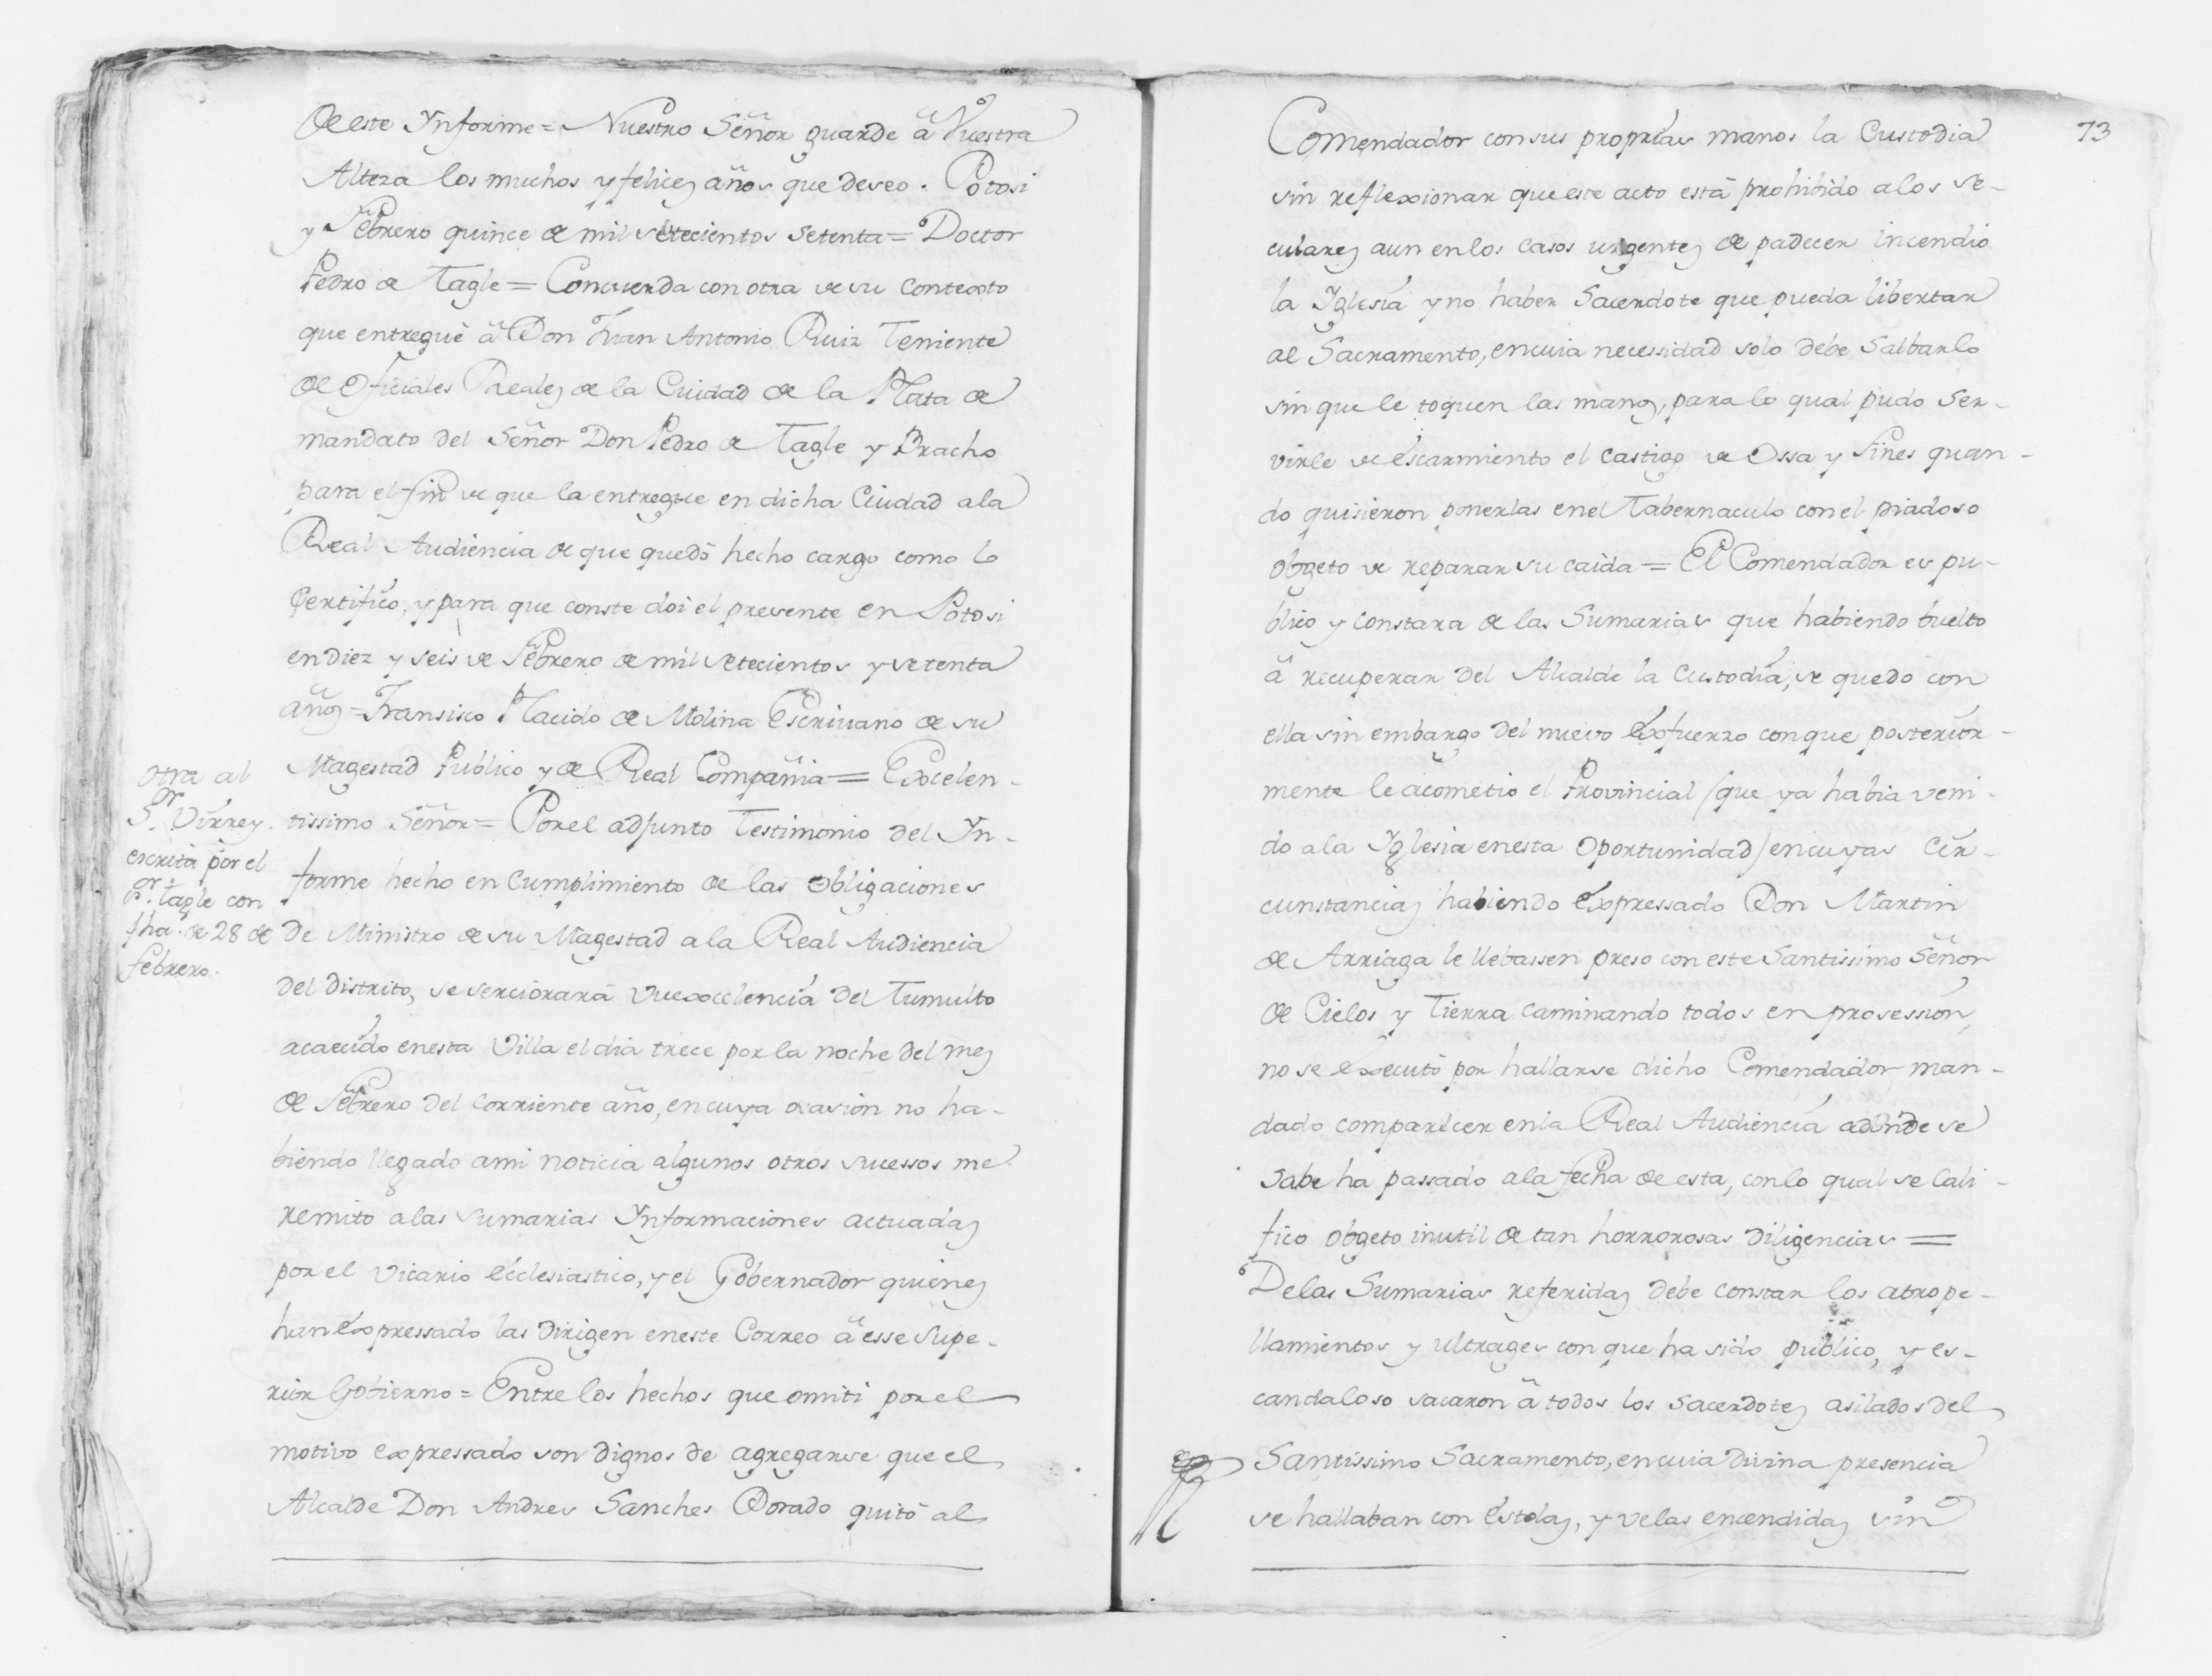 de este Ynforme = Nuestro Señor guarde â Vuestra
Alteza los muchos y felices años que deseo. Potosi
y Febrero quince de mil setecientos setenta = Doctor
Pedro de Tagle = Concuerda con otra de su contexto
que entreguè â Don Juan Antonio Ruiz Teniente
de Oficiales Reales de la Ciudad de la Plata de
mandato del Señor Don Pedro de Tagle y Bracho
para el fin de que la entregue en dicha Ciudad ala
Real Audiencia de que quedò hecho cargo como lo
Certifico, y para que conste doi el presente en Potosi
en diez y seis de Febrero de mil setecientos y setenta
años = Fransisco Placido de Molina Escrivano de su
Magestad Publico y de Real Compañia = Excelen-
tissimo Señor = Por el adjunto Testimonio del Yn-
forme hecho en Cumplimiento de las obligaciones
de Ministro de su Magestad ala Real Audiencia
del distrito, se serciorarà Vuexcelencia del Tumulto
acaecido enesta Villa el dia trece por la noche del mes
de Febrero del corriente año, en cuya ocasion no ha-
biendo llegado ami noticia algunos otros sucessos me
remito alas sumarias Ynformaciones actuadas
por el Vicario Ecclesiastico, y el Gobernador quienes
han expressado las dirigen eneste Correo â esse Supe-
rior Gobierno = Entre los hechos que omiti por el
motivo expressado son dignos de agregarse que el
Alcalde Don Andres Sanches Dorado quitò al
Otra al
S.or Virrey
escrita por el
S.or Tagle con
fha. de 28 de
febrero.
73
Comendador con sus proprias manos la Custodia
sin reflexionar que este acto està prohibido alos se-
culares aun enlos casos urgentes de padecer incendio
la Yglesia y no haber Sacerdote que pueda libertar
al Sacramento, en cuia necessidad solo debe Salbarlo
sin que le toquen las manos, para lo qual pudo Ser-
virle de escarmiento el castigo de Ossa y Fines quan-
do quisieron ponerlas enel Tabernaculo con el piadoso
obgeto de reparar su caida = El Comendador es pu-
blico y constara de las Sumarias que habiendo buelto
â recuperar del Alcalde la Custodia, se quedò con
ella sin embargo del nuevo esfuerzo conque posterior-
mente le acometio el Provincial (que ya habia veni-
do ala Yglesia enesta Oportunidad) en cuyas Cir-
cunstancias habiendo expressado Don Martin
de Arriaga le llebassen preso con este Santissimo Señor
de Cielos y Tierra caminando todos en prosession,
no se executò por hallarse dicho Comendador man-
dado comparecer enla Real Audiencia adonde se
Sabe ha passado ala fecha de esta, con lo qual se Cali-
fico obgeto inutil de tan horrorosas diligencias =
Delas Sumarias referidas debe constar los atrope-
llamientos y ultrages con que ha sido publico, y es-
candaloso sacaron â todos los Sacerdotes asilados del
Santissimo Sacramento, en cuia divina presencia
se hallaban con Estolas, y velas encendidas sin